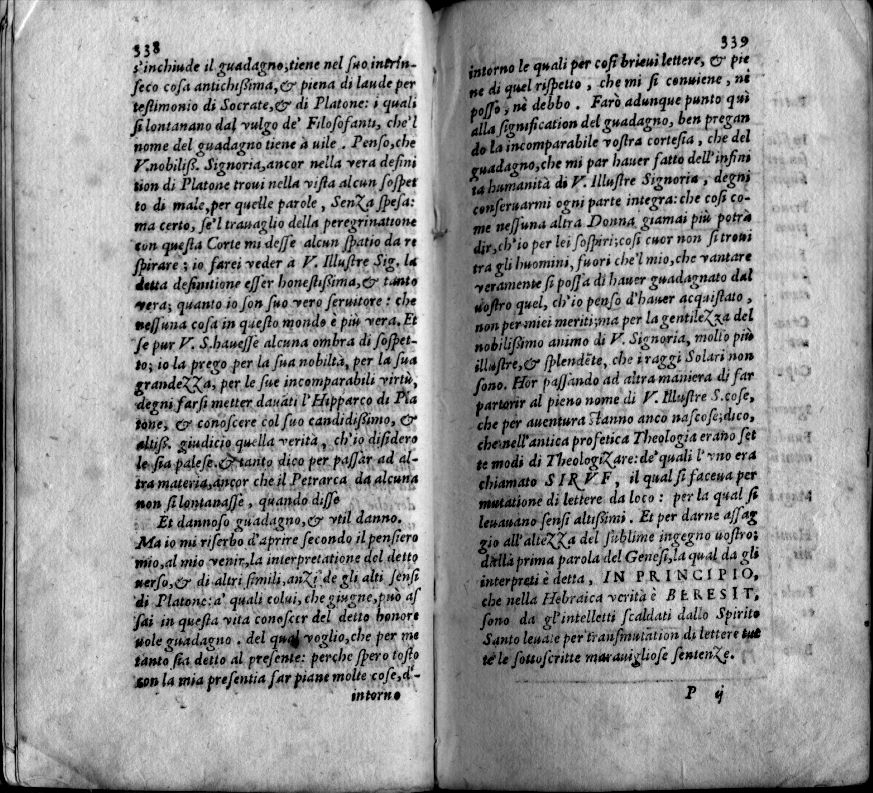 338
s'inchiude il guadagno, tiene nel suo intrin-
seco cosa antichissima, & piena di laude per
testimonio di Socrate, & di Platone: i quali
si lontanano dal vulgo de' Filosofanti, che'l
nome del guadagno tiene à uile. Penso, che
V. nobiliss. Signoria, ancor nella vera defini
tion di Platone troui nella vista alcun sospet
to di male, per quelle parole, SenZa spesa:
ma certo, se'l trauaglio della peregrinatione
con questa Corte mi desse alcun spatio da re
spirare; io farei veder a V. Illustre Sig. la
detta definitione esser honestissima, & tanto
vera; quanto io son suo vero seruitore: che
nessuna cosa in questo mondo è più vera. Et
se pur V. S. hauesse alcuna ombra di sospet-
to; io la prego per la sua nobiltà, per la sua
grandeZZa, per le sue incomparabili virtù,
degni farsi metter dauãti l'Hipparco di Pla
tone, & conoscere col suo candidissimo, &
altiss. giudicio quella verità, ch'io disidero
le sia palese. & tanto dico per passar ad al-
tra materia, ancor che il Petrarca da alcuna
non si lontanasse, quando disse
Et dannoso guadagno, & vtil danno.
Ma io mi riserbo d'aprire secondo il pensiero
mio, al mio venir, la interpretatione del detto
uerso, & di altri simili, anZi de gli alti sensi
di Platone: a' quali colui, che giugne, può as
sai in questa vita conoscer del detto honore
uole guadagno. del qual voglio, che per me
tanto sia detto al presente: perche spero tosto
con la mia presentia far piane molte cose, d'-
intorno
339
intorno le quali per così brieui lettere, & pie
ne di quel rispetto, che mi si conuiene, nè
posso, nè debbo. Farò adunque punto quì
alla signification del guadagno, ben pregan
do la incomparabile vostra cortesia, che del
guadagno, che mi par hauer fatto dell'infini
ta humanità di V. Illustre Signoria, degni
conseruarmi ogni parte integra: che così co-
me nessuna altra Donna giamai più potrà
dir, ch'io per lei sospiri; così cuor non si troui
tra gli huomini, fuori che'l mio, che vantare
veramente si possa di hauer guadagnato dal
uostro quel, ch'io penso d'hauer acquistato,
non per miei meriti; ma per la gentileZza del
nobilissimo animo di V. Signoria, molto più
illustre, & splendẽte, che i raggi Solari non
sono. Hor passando ad altra maniera di far
partorir al pieno nome di V. Illustre S. cose,
che per auentura stanno anco nascose; dico,
che nell'antica profetica Theologia erano set
te modi di TheologiZare: de' quali l'vno era
chiamato SIRVF, il qual si faceua per
mutatione di lettere da loco: per la qual si
leuauano sensi altissimi. Et per darne assag
gio all'alteZZa del sublime ingegno uostro;
dalla prima parola del Genesi, la qual da gli
interpreti è detta, IN PRINCIPIO,
che nella Hebraica verità è BERESIT,
sono da gl'intelletti scaldati dallo Spirito
Santo leuate per transmutation di lettere tut
te le sottoscritte marauigliose sentenZe.
P ij